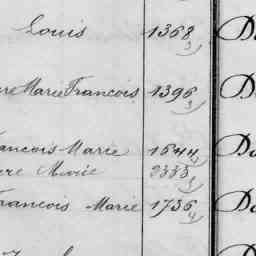 Louis 1368 3 D
re Marie Francois 1396 3 D
ancois Marie 1644 3 D
re Marie 2335 3
rancois Marie 1736 4 D